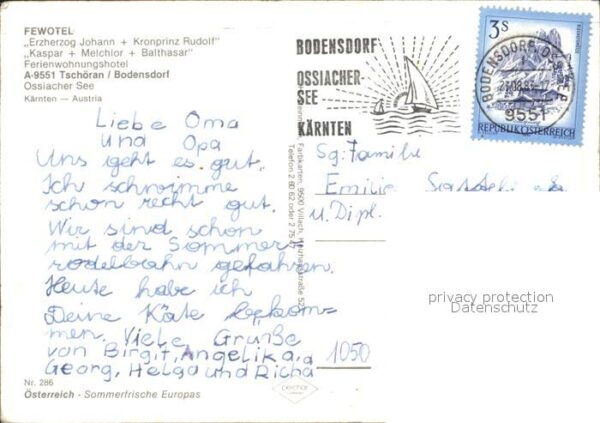 FEWOTEL
„Erzherzog Johann + Kronprinz Rudolf"
„Kaspar + Melchior + Balthasar"
Ferienwohnungshotel
A-9551 Tschöran / Bodensdorf
Ossiacher See
Kärnten — Austria
Liebe Oma
und Opa
Uns geht es gut.
Ich schwimme
schon recht gut.
Wir sind schon
mit der Sommer-
rodelbahn gefahren.
Heute habe ich
Deine Karte bekom-
men. Viele Grüße
von Birgit, Angelika,
Georg, Helga und Richa
Nr. 286
Österreich - Sommerfrische Europas
Farbkarten, 9500 Villach,
Telefon 2 60 62 oder 2 75
BODENSDORF
OSSIACHER-
SEE
KÄRNTEN
3 S
BODENSDORF
9551
REPUBLIK ÖSTERREICH
Sg. Familie
Emilie
u. Dipl.
1050
privacy protection
Datenschutz